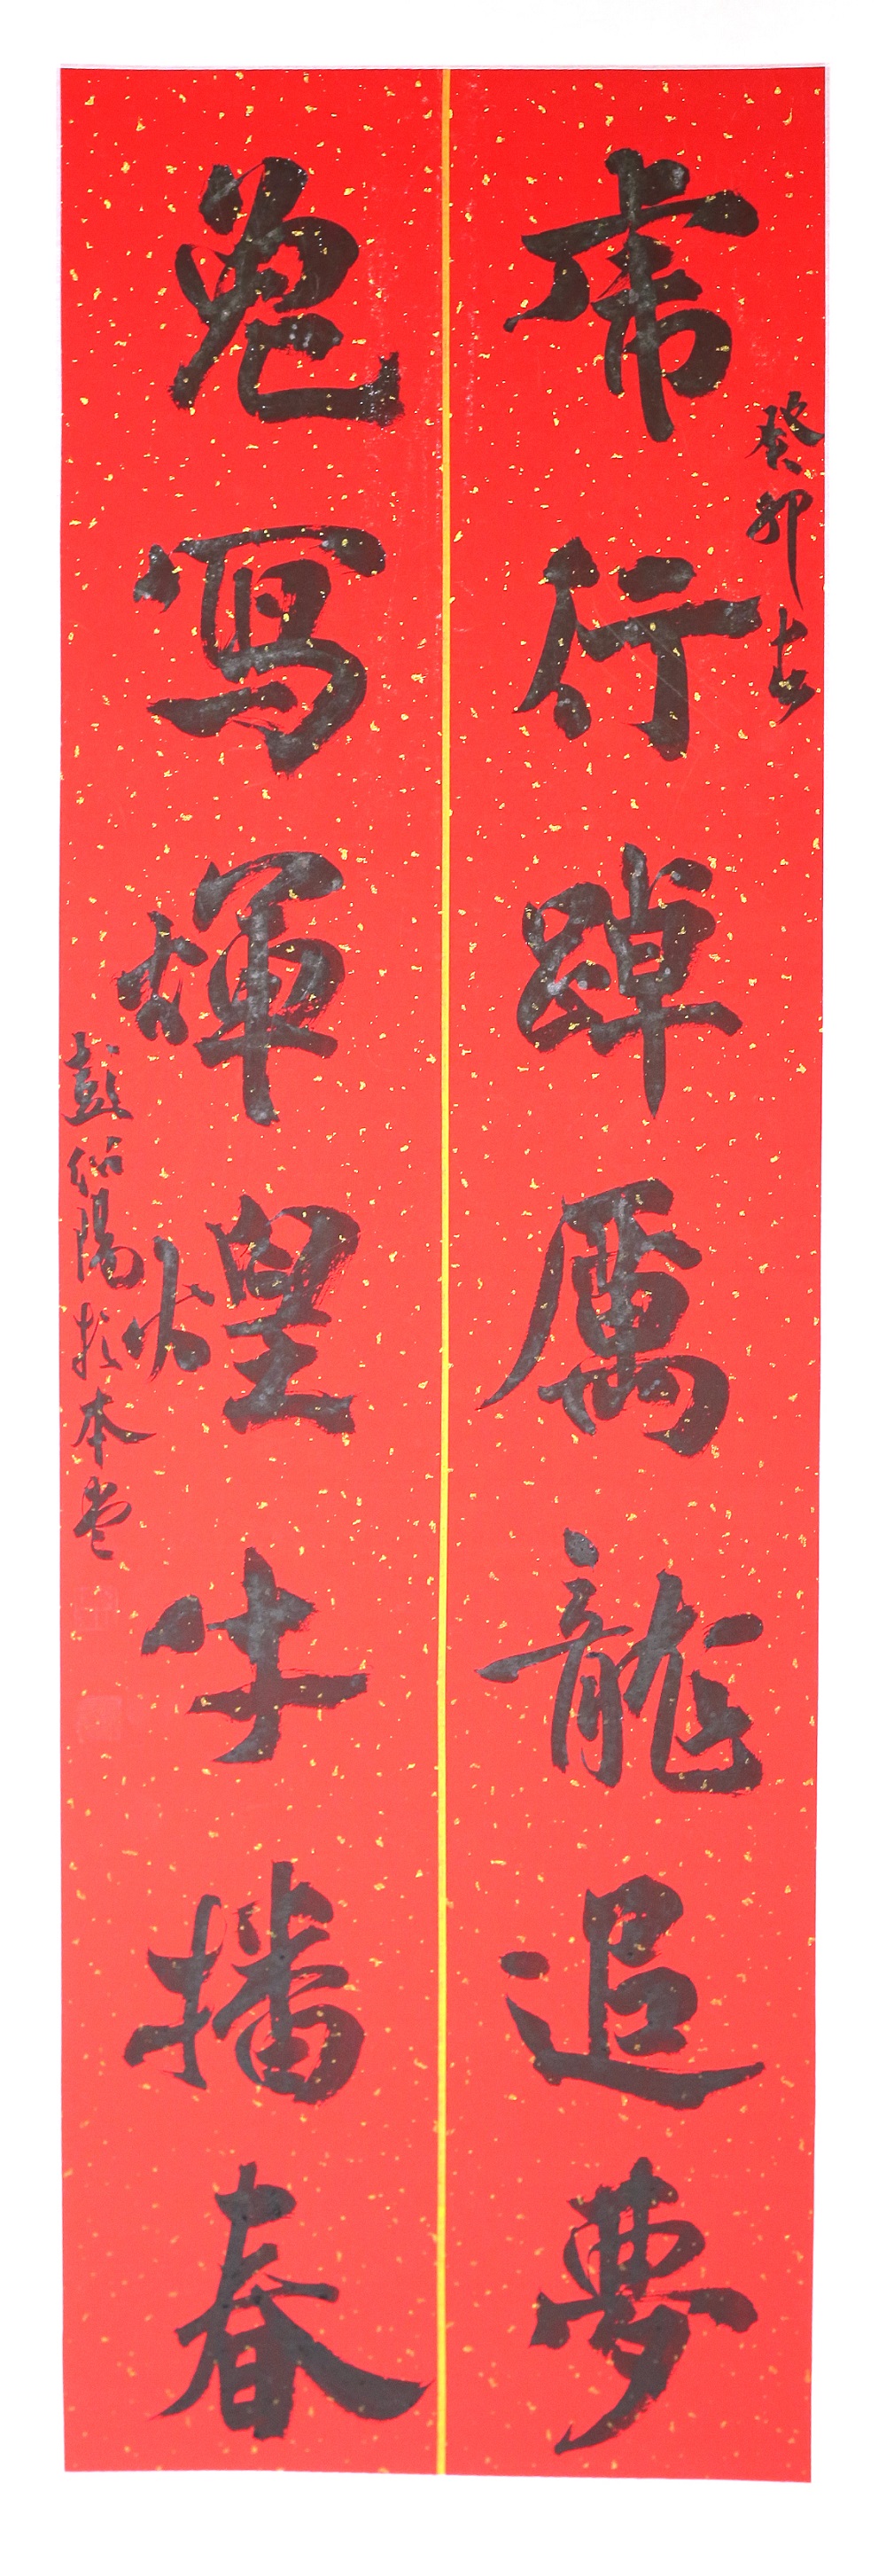 虎行踔厲龍追夢
癸卯吉
兔寫輝煌牛播春
彭紹陽於本堂